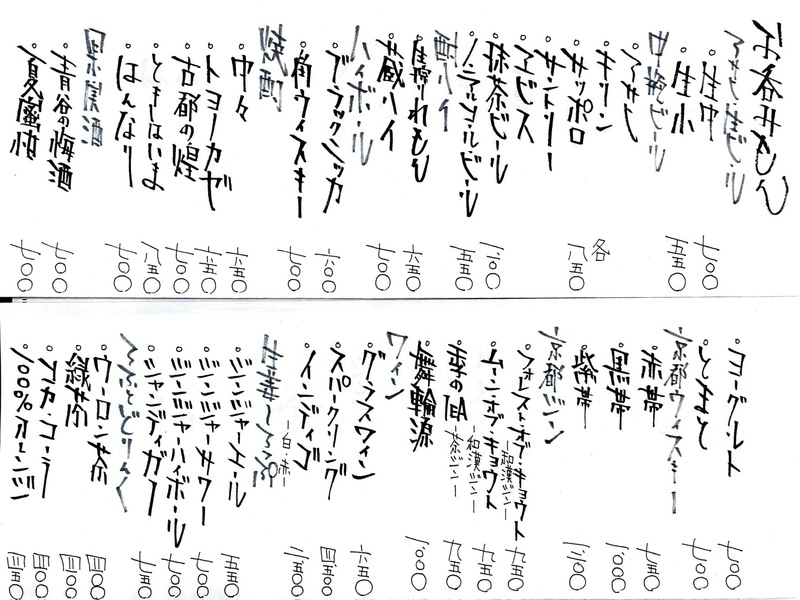 お呑みもん
アサヒ生ビール
・生中 七〇〇
・生小 五五〇
中瓶ビール
・アサヒ
・キリン
・サッポロ 各八五〇
・サントリー
・ヱビス
・抹茶ビール
・ノンアルコールビール 五五〇
酎ハイ
・生搾りれもん 六五〇
・蔵ハイ 七〇〇
ハイボール
・ブラックニッカ 六〇〇
・角ウィスキー 七〇〇
焼酎
・中々 六五〇
六五〇
・古都の煌 七〇〇
・ときはいま 八五〇
・はんなり 七〇〇
果実酒
・青谷の梅酒 七〇〇
・夏蜜柑 七〇〇
・ヨーグルト 七〇〇
・とまと 七〇〇
京都ウィスキー
・赤帯 七五〇
・黒帯
・紫帯
京都ジン
・フォレスト・オブ・キョウト ―和漢ジン― 九五〇
・ムーン・オブ・キョウト ―和漢ジン― 九五〇
・季のTEA ―お茶ジン― 九五〇
・舞輪源
ワイン
・グラスワイン 六五〇
・スパークリング
・インディゴ ―白・赤―
生姜しろっぷ
・ジンジャーエール 五五〇
・ジンジャーサワー 七〇〇
・ジンジャーハイボール 七〇〇
・シャンディガフ 七五〇
そふとどりんく
・ウーロン茶 四〇〇
・緑茶 四〇〇
・コカ・コーラ 四〇〇
・100%オレンジ 四五〇